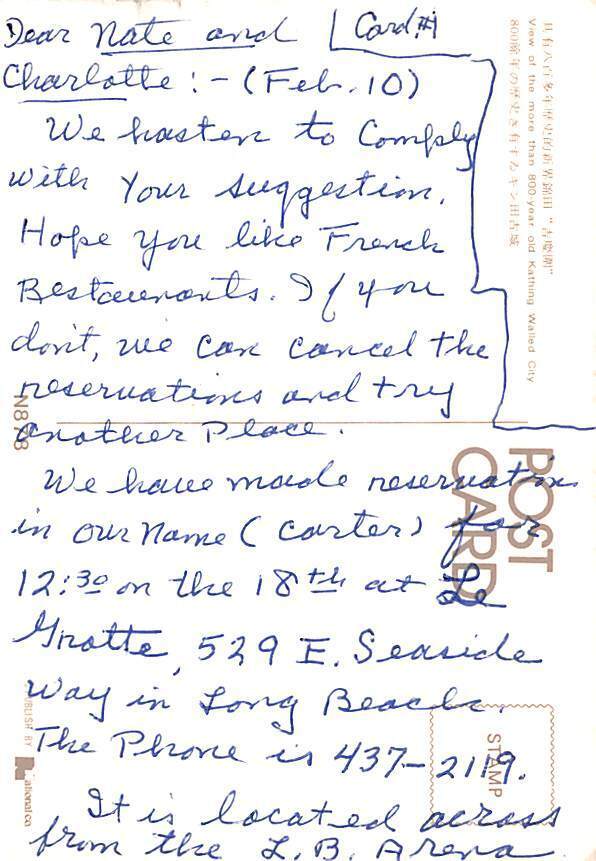 Dear Nate and
Card #1
Charlotte:- (Feb. 10)
We hasten to Comply
with your suggestion.
Hope you like French
Restaurants. If you
don't, we can cancel the
reservations and try
another Place.
We have made reservations
in our name (Carter) for
12:30 on the 18th at Le
Grotte, 529 E. Seaside
Way in Long Beach.
The Phone is 437-2119.
It is located across
from the L.B. Arena
View of the more than 800-year old Kathing Walled City
N878
POST
CARD
STAMP
PUBLISH BY
National Co